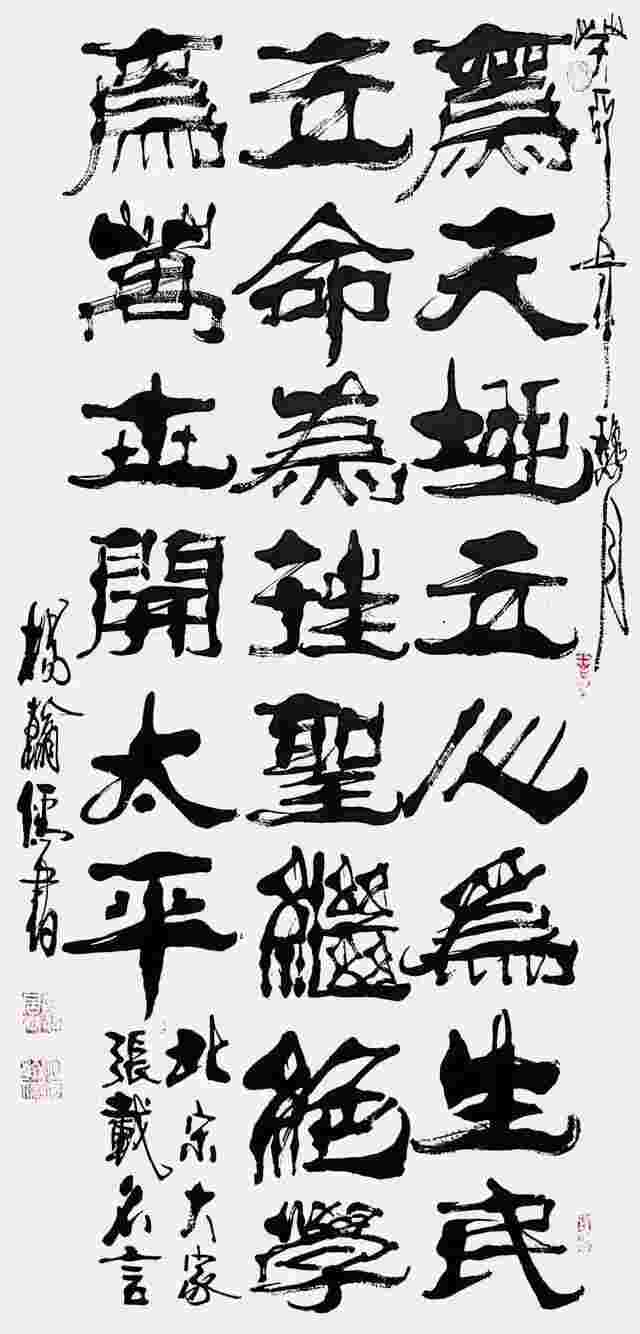 為天地立心為生民
立命為往聖繼絕學
為萬世開太平
北宋大家
張載名言
楊翰儒書